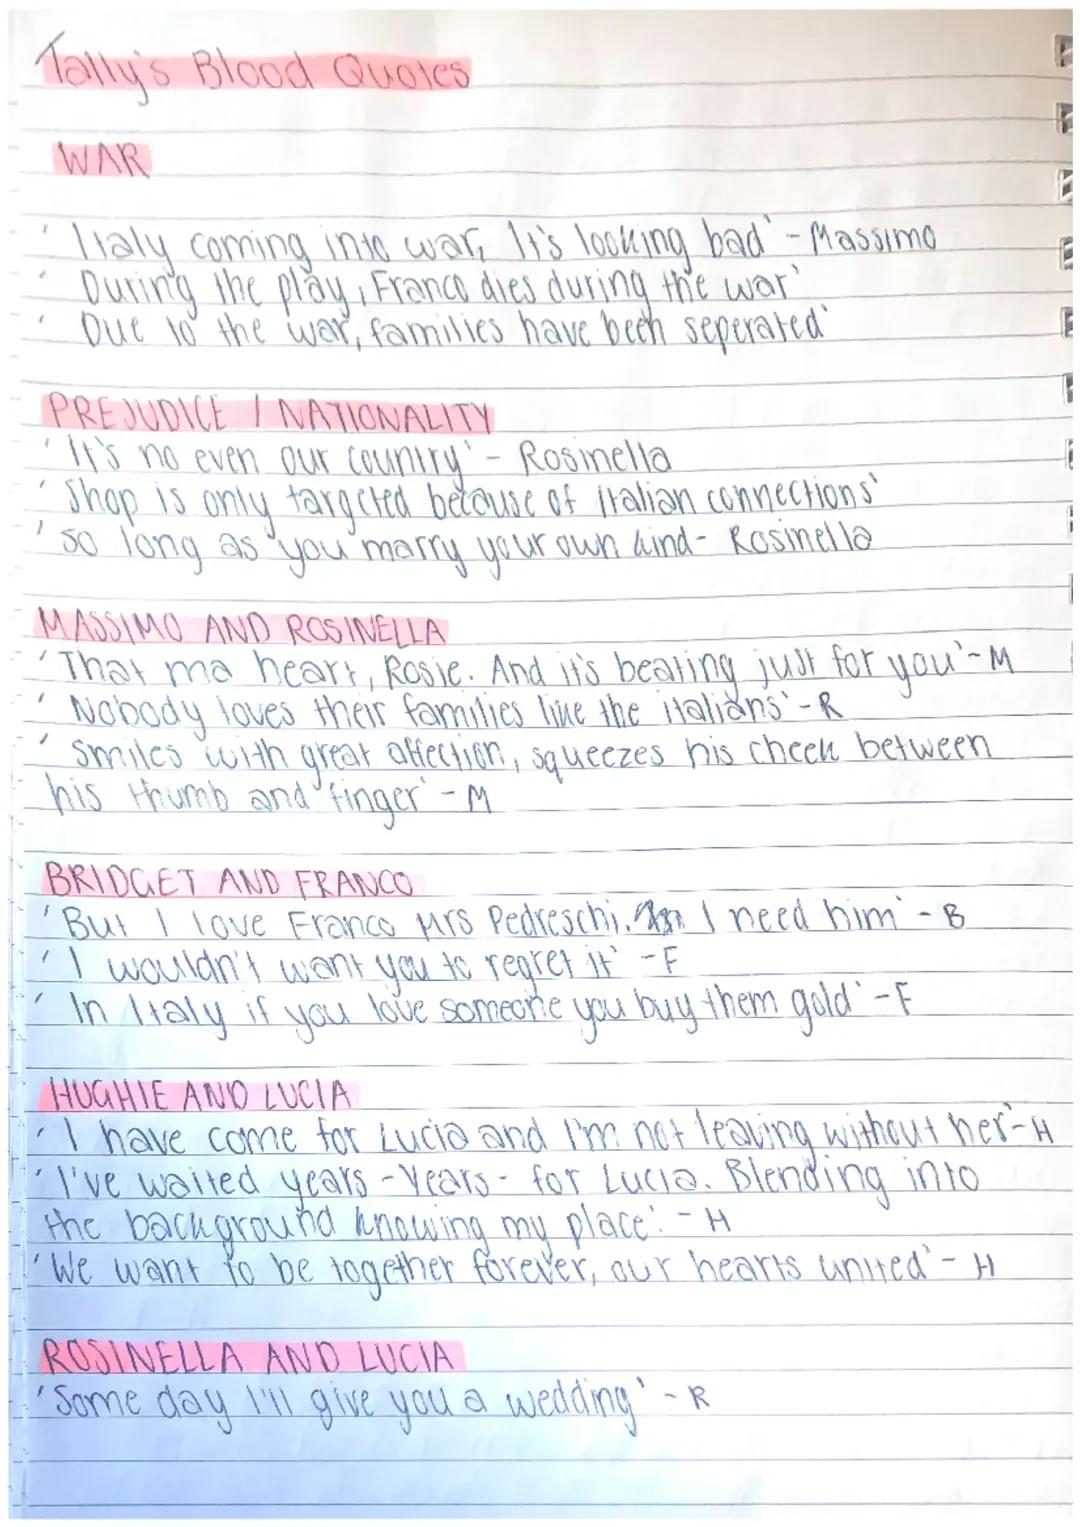 Tally's Blood Quotes
WAR
' Italy coming into war, It's looking bad' - Massimo
' During the play, Franco dies during the war'
' Due to the war, families have been seperated'
PREJUDICE / NATIONALITY
' It's no even our country' - Rosinella
' Shop is only targeted because of italian connections'
' so long as you marry your own kind- Rosinella
MASSIMO AND ROSINELLA
' That ma heart, Rosie. And it's beating just for you'-M
' Nobody loves their families like the italians' - R
' smiles with great affection, squeezes his cheek between
his thumb and finger' - M
BRIDGET AND FRANCO
' But I love Franco Mrs Pedreschi. I need him' - B
' I wouldn't want you to regret it' - F
' In Italy if you love someone you buy them gold' - F
HUGHIE AND LUCIA
' I have come for Lucia and I'm not leaving without her'- H
' I've waited years - Years - for Lucia. Blending into
the background knowing my place'. - H
' We want to be together forever, our hearts united' - H
ROSINELLA AND LUCIA
' Some day I'll give you a wedding' - R